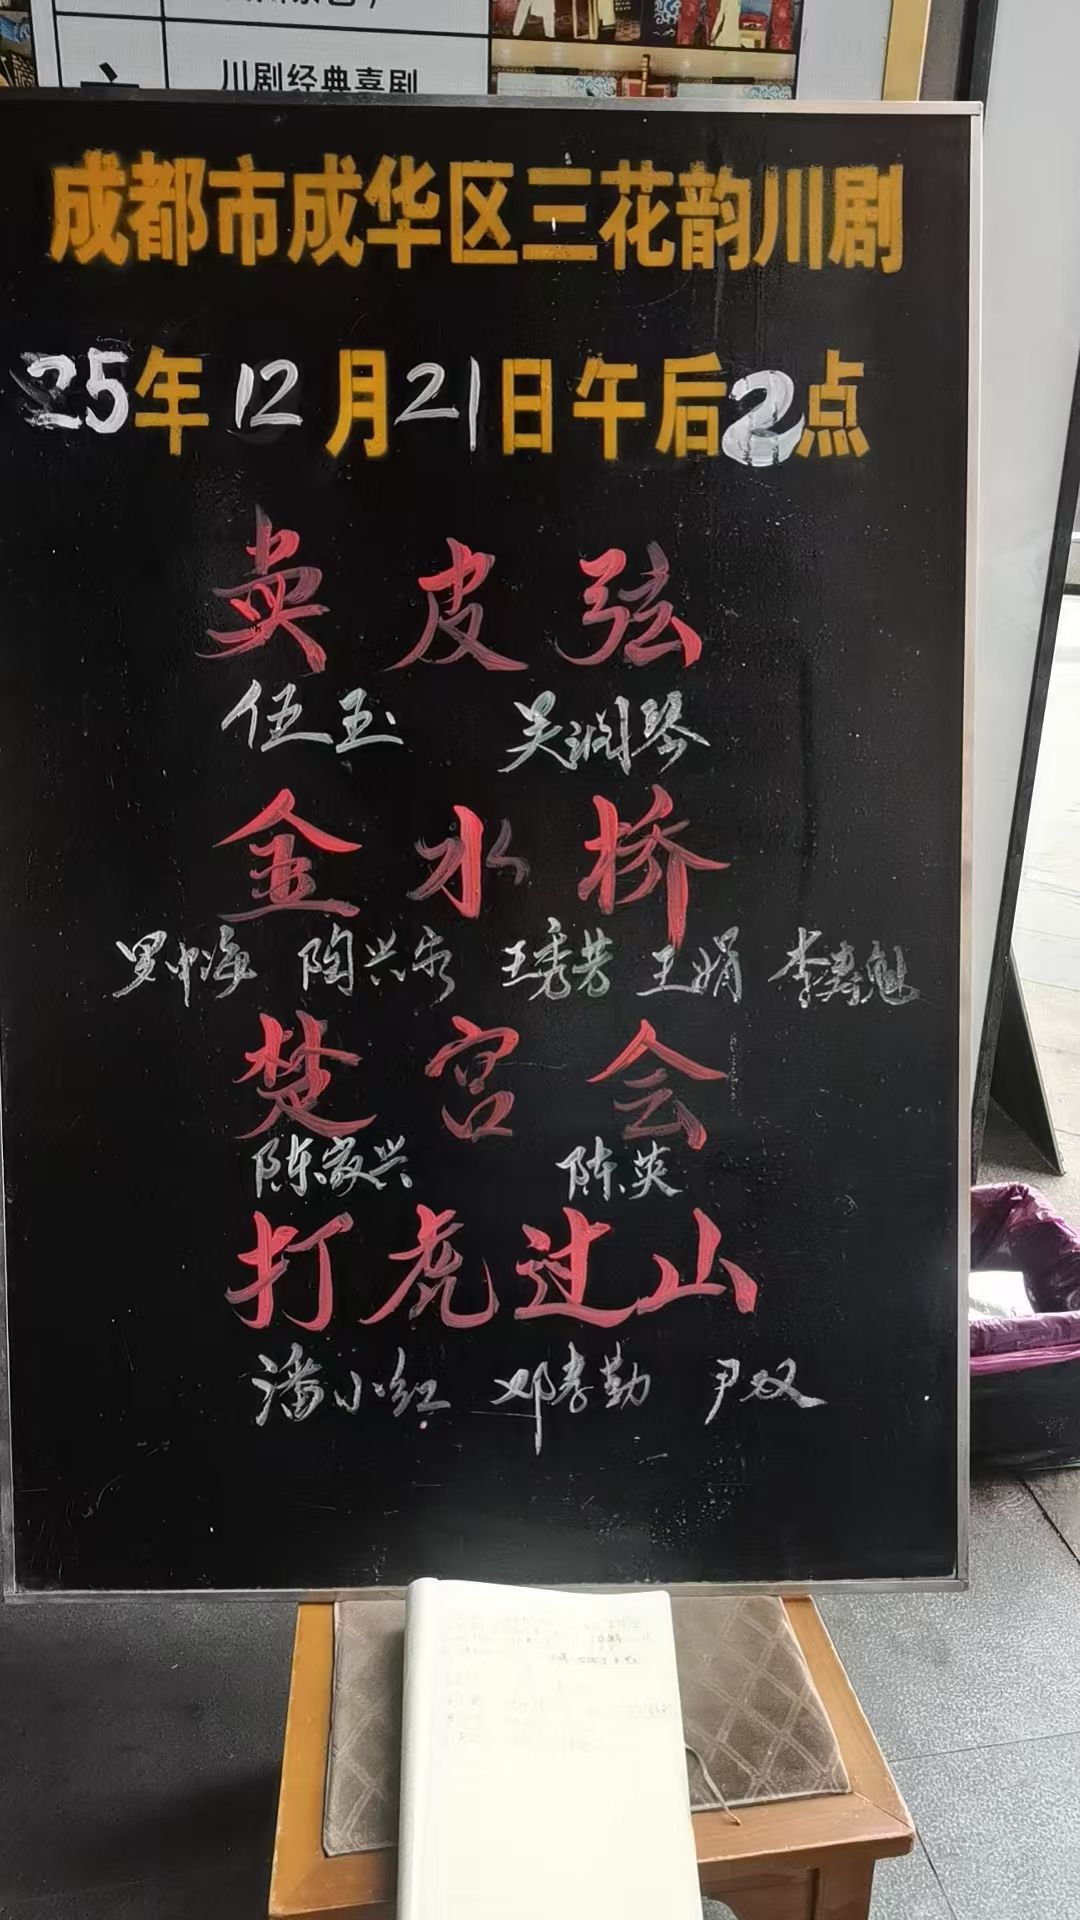 川剧经典喜剧
成都市成华区三花韵川剧
25年12月21日午后2点
卖皮弦
伍玉 吴润琴
金水桥
罗中海 陶兴秀 王秀芳 王娟 李寿魁
楚宫会
陈家兴 陈英
打虎过山
潘小红 邓孝勤 尹双